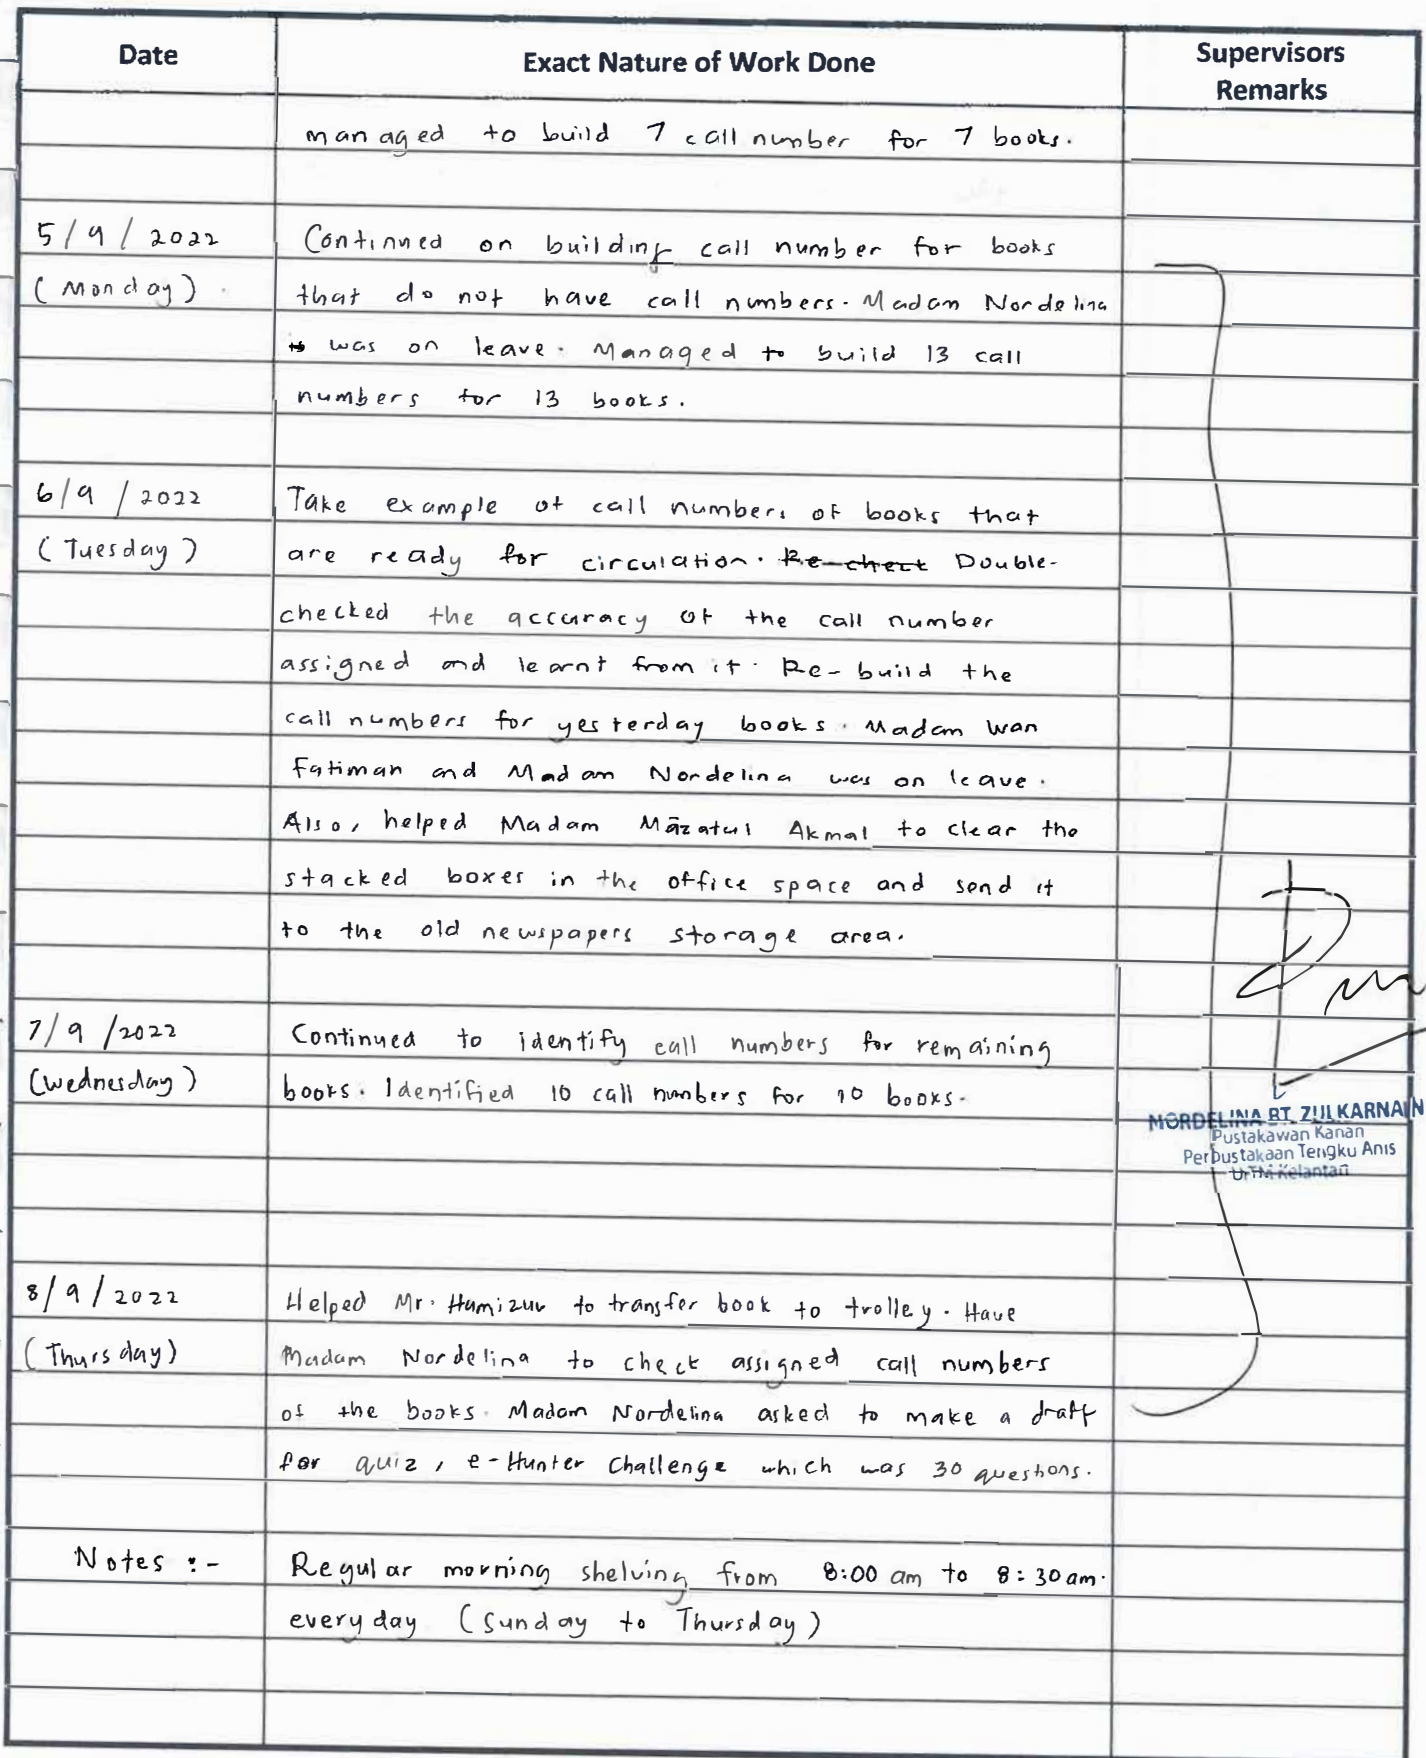 Date
Exact Nature of Work Done
Supervisors
Remarks
managed to build 7 call number for 7 books.
5/9/2022
Continued on building call number for books
(Monday)
that do not have call numbers. Madam Nordelina
was on leave. Managed to build 13 call
numbers for 13 books.
6/9/2022
Take example of call numbers of books that
(Tuesday)
are ready for circulation. Re-check Double-
checked the accuracy of the call number
assigned and learnt from it. Re-build the
call numbers for yesterday books. Madam Wan
Fatimah and Madam Nordelina was on leave.
Also, helped Madam Mazatul Akmal to clear the
stacked boxes in the office space and send it
to the old newspapers storage area.
7/9/2022
Continued to identify call numbers for remaining
(Wednesday)
books. Identified 10 call numbers for 10 books.
NORDELINA BT. ZULKARNAIN
Pustakawan Kanan
Perpustakaan Tengku Anis
UiTM Kelantan
8/9/2022
Helped Mr. to transfer book to trolley. Have
(Thursday)
Madam Nordelina to check assigned call numbers
of the books. Madam Nordelina asked to make a draft
for quiz, e-Hunter Challenge which was 30 questions.
Notes :-
Regular morning shelving from 8:00 am to 8:30 am.
everyday (Sunday to Thursday)